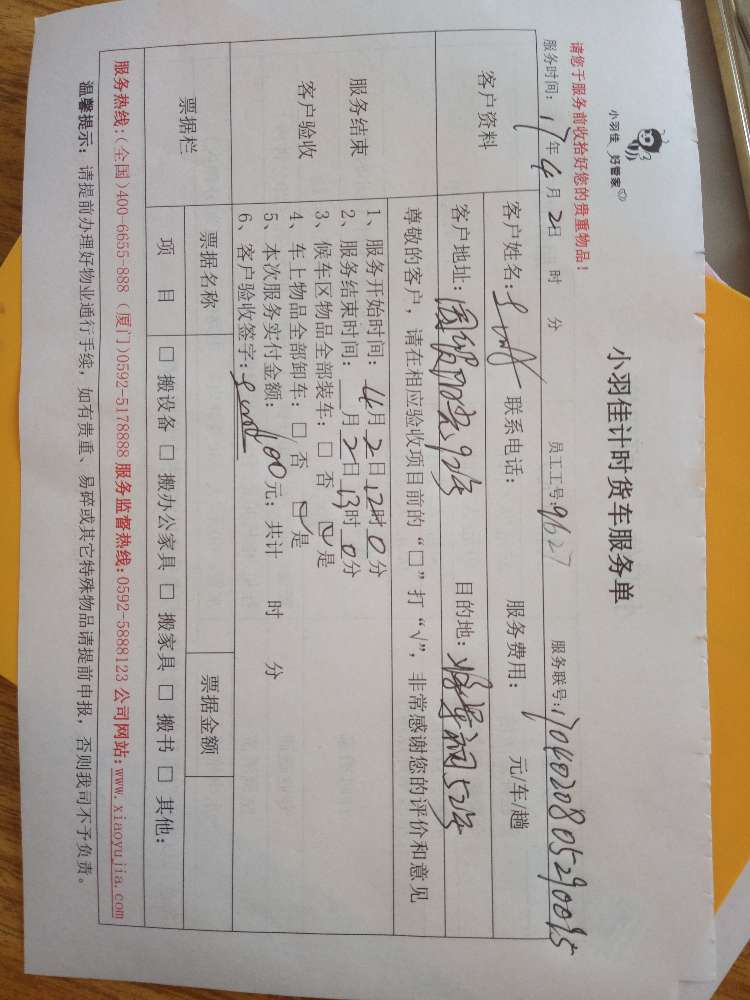 小羽佳 好管家
小羽佳计时货车服务单
请您于服务前收拾好您的贵重物品！
服务时间：17年4月2日 时 分 员工工号：9627 服务联号：
客户资料
客户姓名： 联系电话： 服务费用： 元/车/趟
客户地址：国贸阳光92号 目的地：将军祠52号
尊敬的客户，请在相应验收项目前的“□”打“√”，非常感谢您的评价和意见
服务结束
客户验收
1、服务开始时间：4月2日12时0分
2、服务结束时间： 月2日13时0分
3、候车区物品全部装车：□ 否 ☑是
4、车上物品全部卸车：□ 否 ☑是
5、本次服务实付金额：100元；共计 时 分
6、客户验收签字：
票据栏
票据名称 票据金额
项 目 □ 搬设备 □ 搬办公家具 □ 搬家具 □ 搬书 □ 其他：
服务热线：(全国)400-6655-888 (厦门)0592-5178888 服务监督热线：0592-5888123 公司网站：www.xiaoyujia.com
温馨提示：请提前办理好物业通行手续，如有贵重、易碎或其它特殊物品请提前申报，否则我司不予负责。